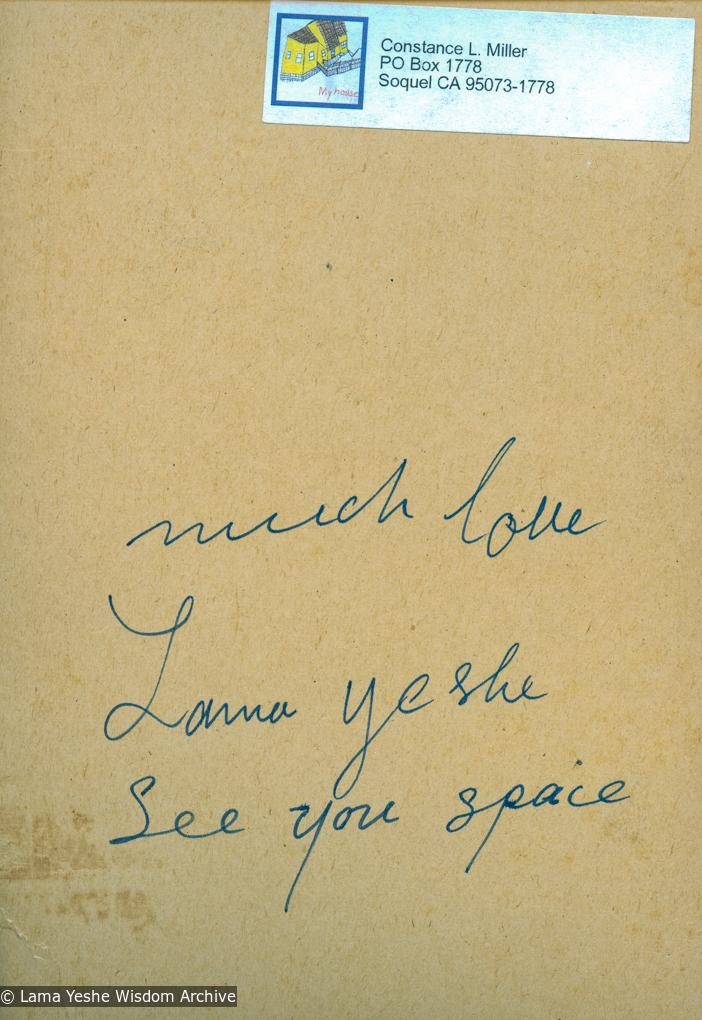 My house
Constance L. Miller
PO Box 1778
Soquel CA 95073-1778
much love
Lama yeshe
See you space
© Lama Yeshe Wisdom Archive